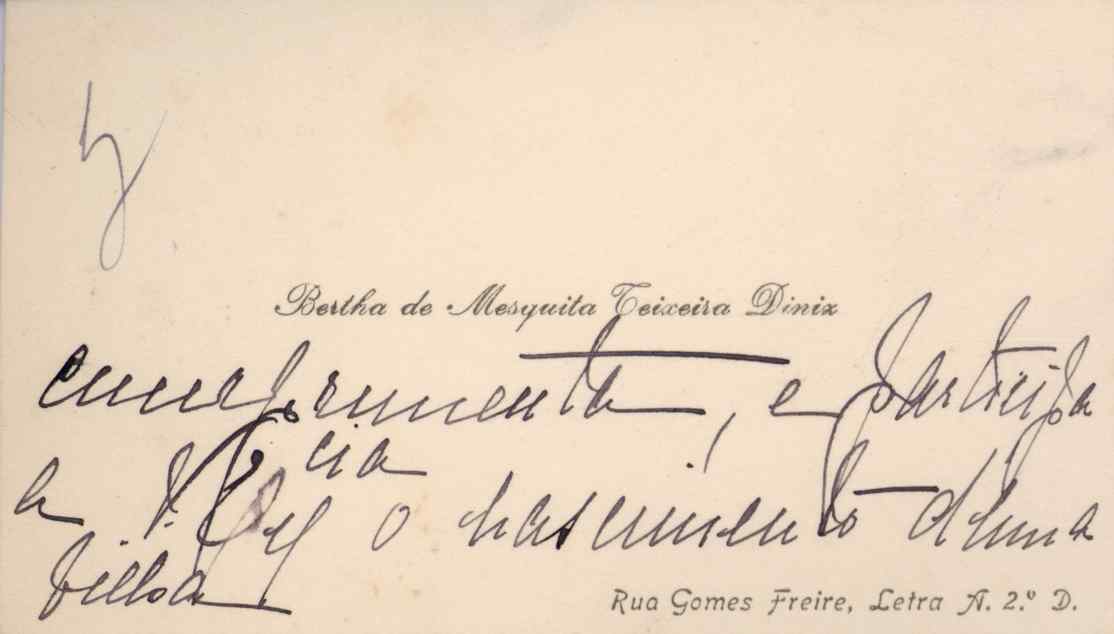 Bertha de Mesquita Teixeira Diniz
cumprimenta, e participa
a V. Ex.cia o nascimento d'uma
filha
Rua Gomes Freire, Letra A. 2.º D.